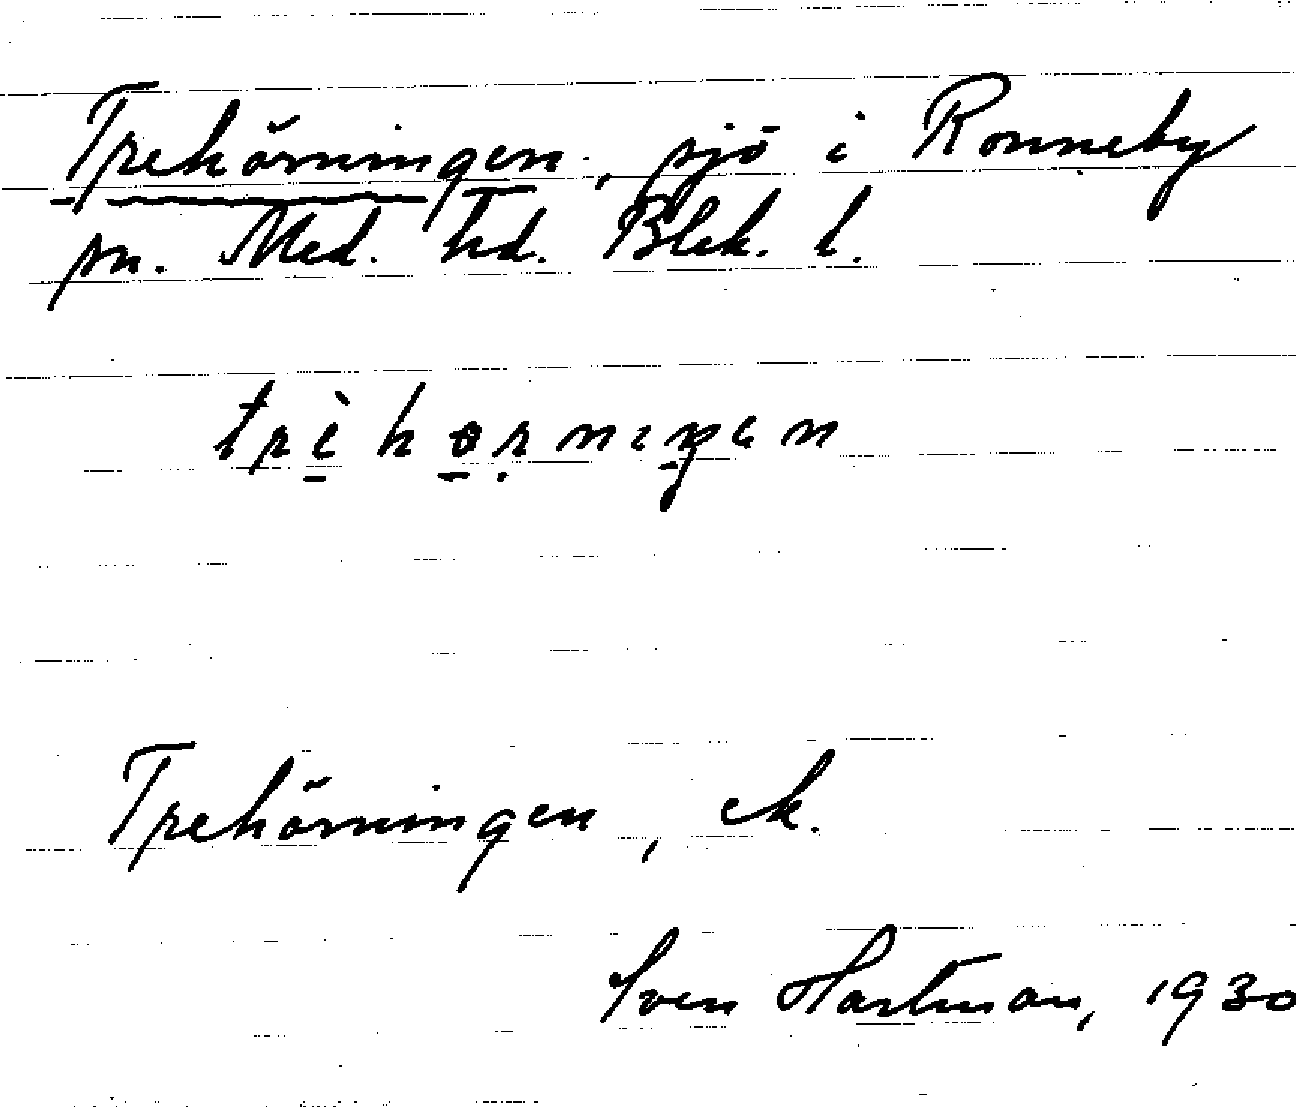 Trehörningen, sjö i Ronneby
sn. Med. hd. Blek. l.
trèhørneŋen
Trehörningen, ek.
Sven Hartman, 1930